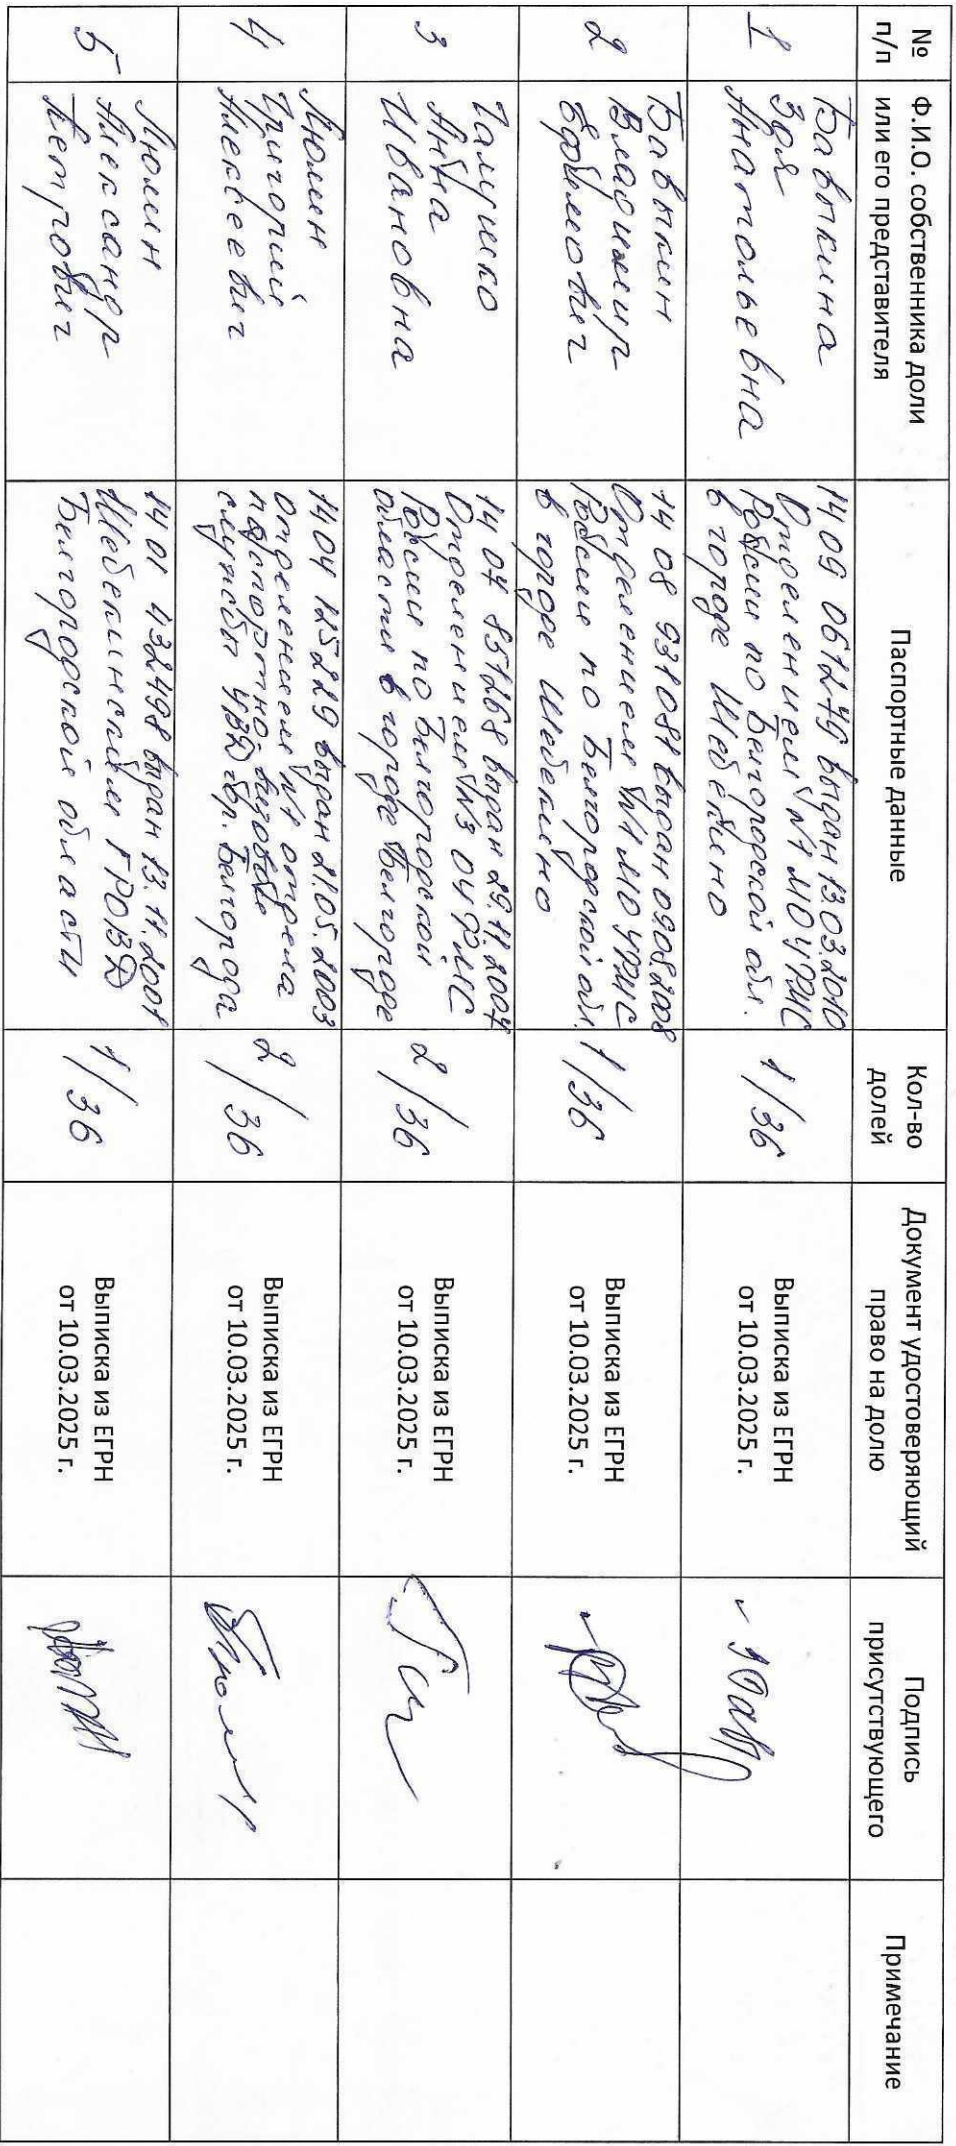 № п/п
Ф.И.О. собственника доли или его представителя
Паспортные данные
Кол-во долей
Документ удостоверяющий право на долю
Подпись присутствующего
Примечание
1
Бавыкина
Зоя
Анатольевна
14 09 061249 выдан 13.03.2010
Отделением №1 МО УФМС
России по Белгородской обл.
в городе Шебекино
1/36
Выписка из ЕГРН
от 10.03.2025 г.
2
Бавыкин
Владимир
Ефимович
14 08 931081 выдан 09.08.2008
Отделением №1 МО УФМС
России по Белгородской обл.
в городе Шебекино
1/36
Выписка из ЕГРН
от 10.03.2025 г.
3
Галушко
Анна
Ивановна
14 07 851268 выдан 29.11.2007
Отделением №3 ОУФМС
России по Белгородской
области в городе Белгороде
2/36
Выписка из ЕГРН
от 10.03.2025 г.
4
Люлин
Григорий
Алексеевич
14 04 125229 выдан 21.05.2003
отделением №1 отдела
паспортно-визовой
службы УВД гор. Белгорода
2/36
Выписка из ЕГРН
от 10.03.2025 г.
5
Люлин
Александр
Петрович
14 01 432498 выдан 13.11.2001
Шебекинским ГРОВД
Белгородской области
1/36
Выписка из ЕГРН
от 10.03.2025 г.